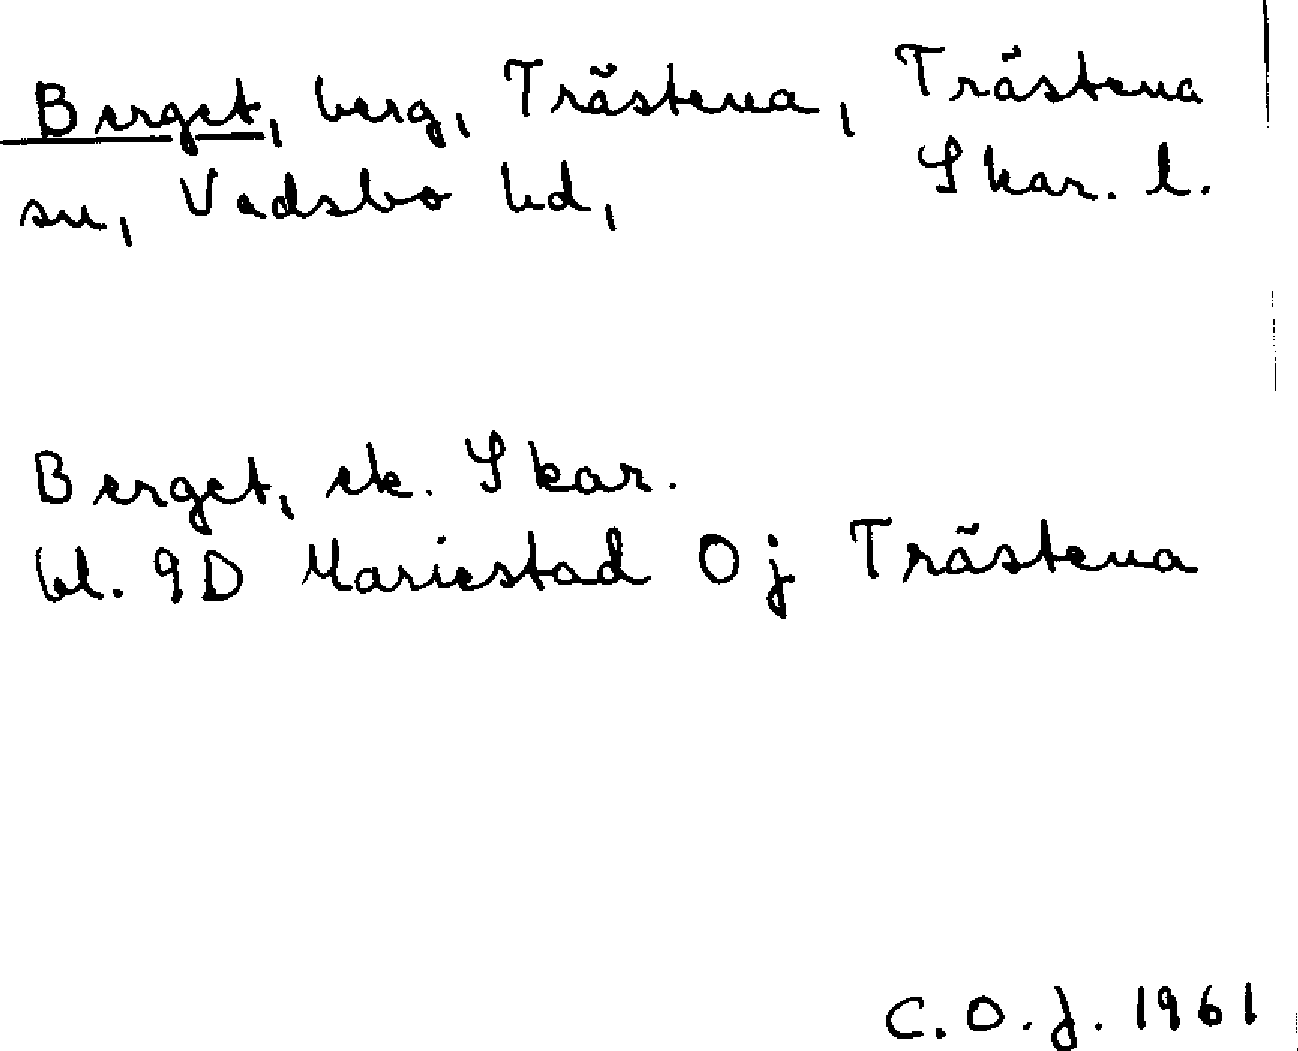 Berget, berg, Trästena, Trästena
sn, Vadsbo hd, Skar. l.
Berget, ek. Skar.
bl. 9D Mariestad 0j Trästena
C.O.J. 1961